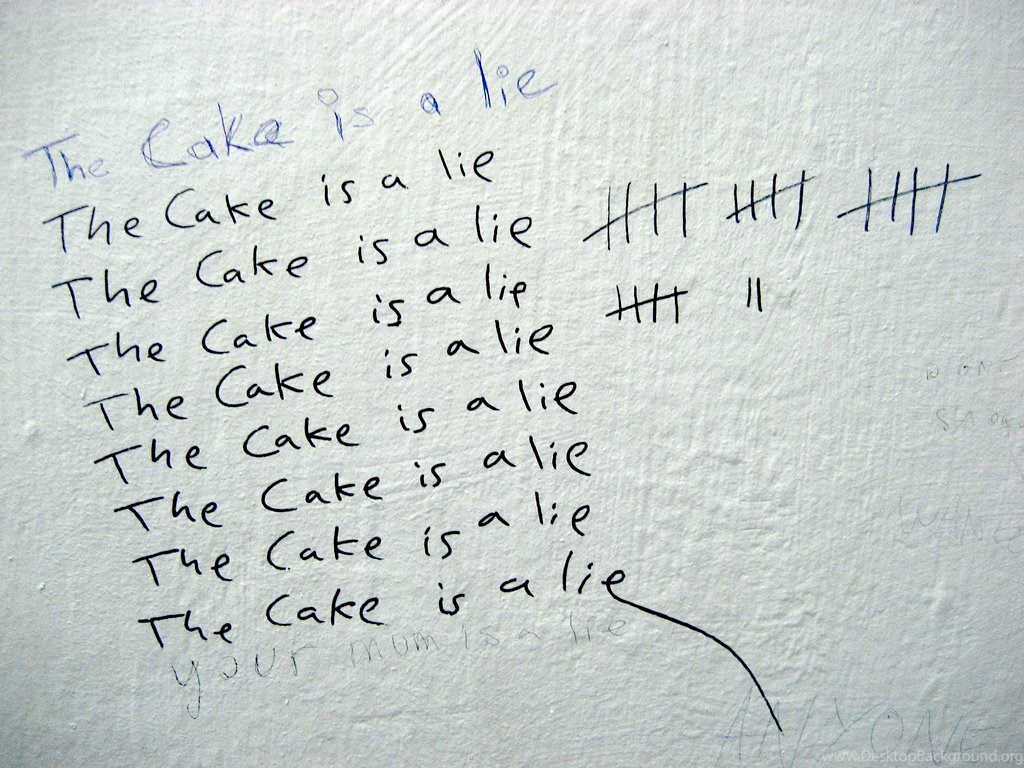 The Cake is a lie
The Cake is a lie
The Cake is a lie
The Cake is a lie
The Cake is a lie
The Cake is a lie
The Cake is a lie
The Cake is a lie
The Cake is a lie
your mum is a lie
ANYONE
www.DesktopBackground.org